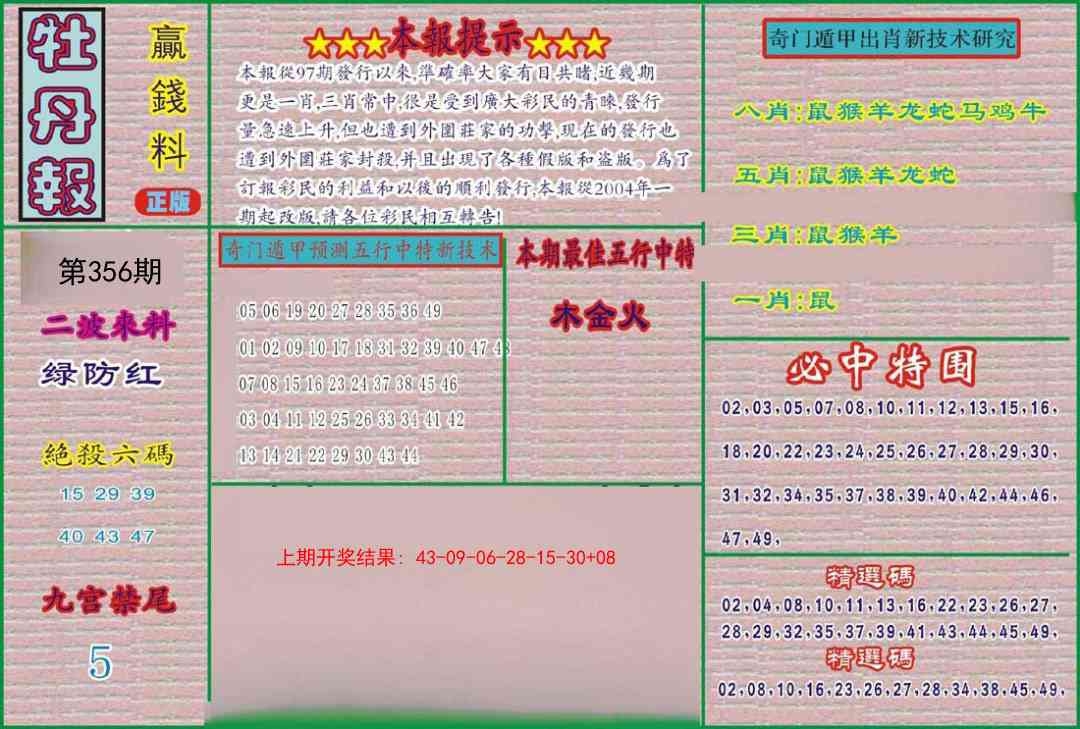 牡丹報
贏錢料
正版
★★★本報提示★★★
本報從97期發行以來,準確率大家有目共睹,近幾期
更是一肖,三肖常中,很是受到廣大彩民的青睞,發行
量急速上升,但也遭到外圍莊家的功擊,現在的發行也
遭到外圍莊家封殺,并且出現了各種假版和盜版。爲了
訂報彩民的利益和以後的順利發行,本報從2004年一
期起改版,請各位彩民相互轉告!
奇门遁甲出肖新技术研究
八肖:鼠猴羊龙蛇马鸡牛
五肖:鼠猴羊龙蛇
三肖:鼠猴羊
一肖:鼠
第356期
二波來料
绿防红
絕殺六碼
15 29 39
40 43 47
九宫禁尾
5
奇门遁甲预测五行中特新技术
05 06 19 20 27 28 35 36 49
01 02 09 10 17 18 31 32 39 40 47 48
07 08 15 16 23 24 37 38 45 46
03 04 11 12 25 26 33 34 41 42
13 14 21 22 29 30 43 44
本期最佳五行中特
木金火
上期开奖结果: 43-09-06-28-15-30+08
必中特围
02,03,05,07,08,10,11,12,13,15,16,
18,20,22,23,24,25,26,27,28,29,30,
31,32,34,35,37,38,39,40,42,44,46,
47,49,
精選碼
02,04,08,10,11,13,16,22,23,26,27,
28,29,32,35,37,39,41,43,44,45,49,
精選碼
02,08,10,16,23,26,27,28,34,38,45,49,